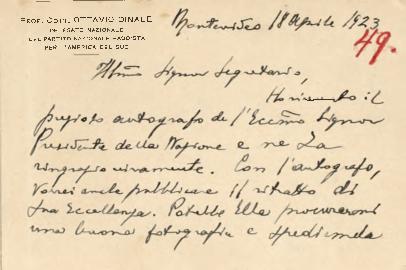 PROF. COMM. OTTAVIO DINALE
DELEGATO NAZIONALE
DEL PARTITO NAZIONALE FASCISTA
PER L'AMERICA DEL SUD
Montevideo 18 Aprile 1923
49.
Illmo Signor Segretario,
Ho ricevuto il
pregiato autografo de l'Eccmo Signor
Presidente della Nazione e ne La
ringrazio vivamente. Con l'autografo,
vorrei anche pubblicare il ritratto di
Sua Eccellenza. Potrebbe Ella procurarmi
una buona fotografia e spedirmela